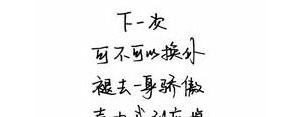 下一次
可不可以换你
褪去一身骄傲